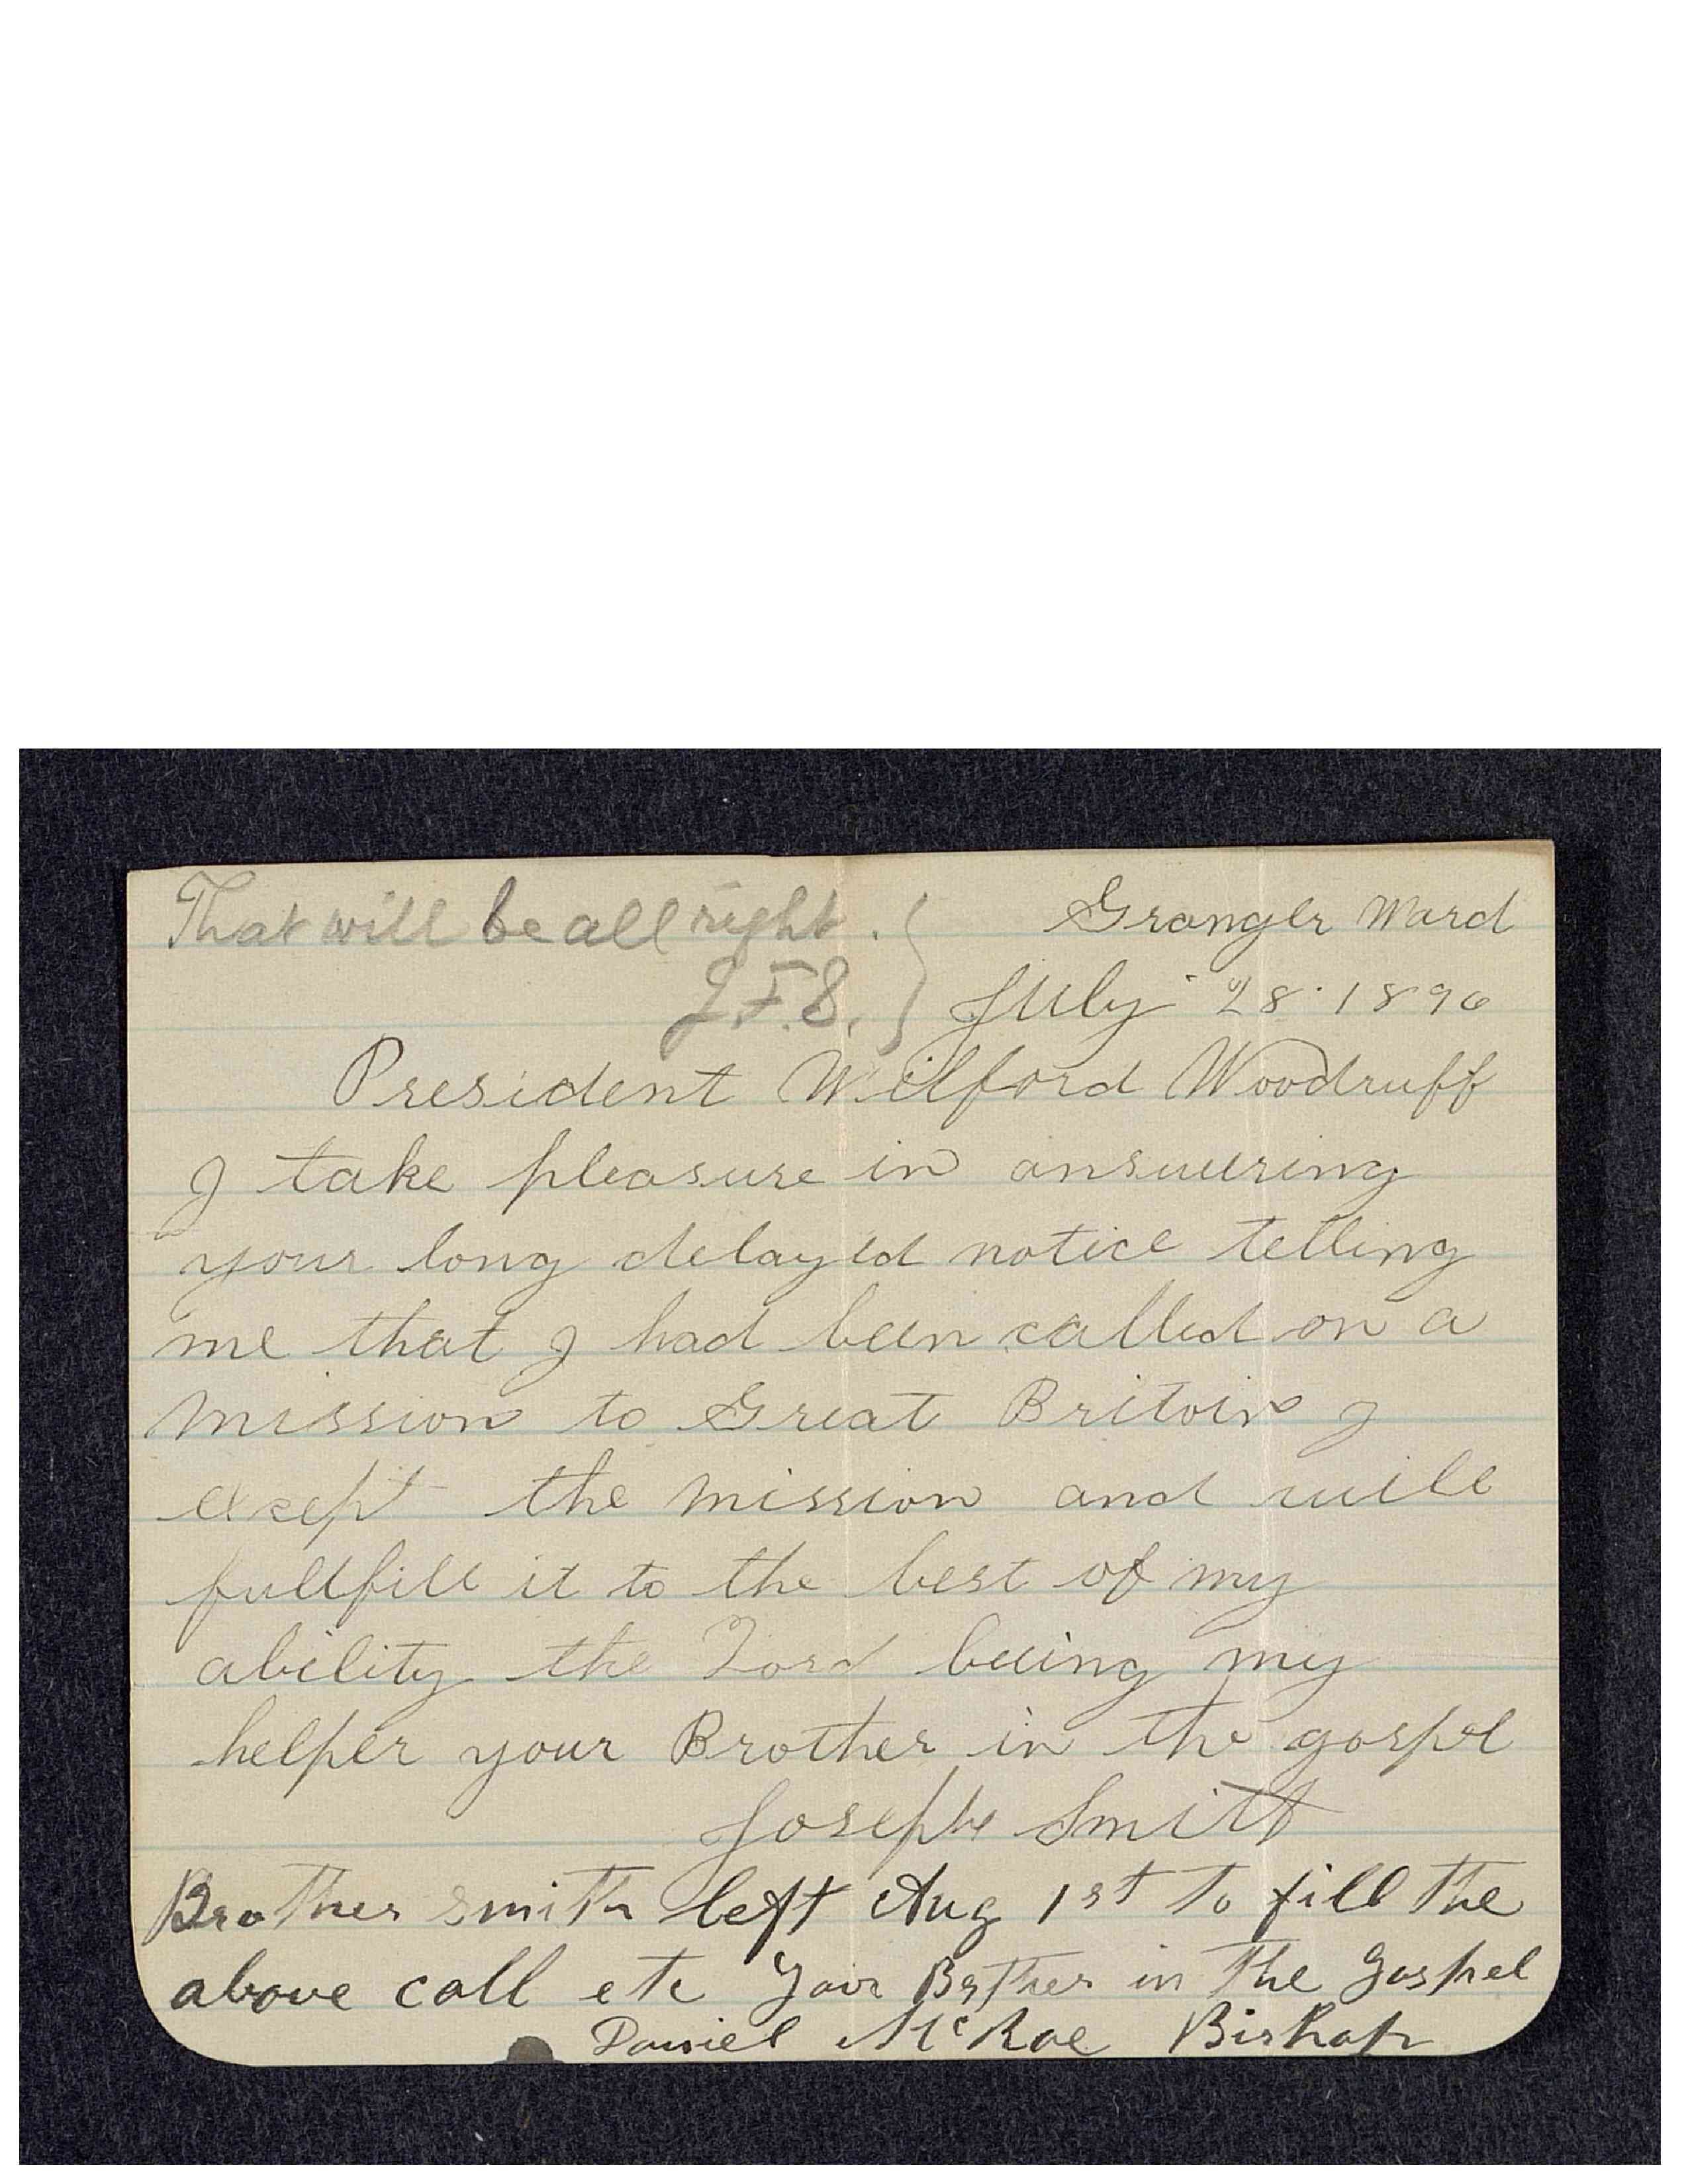 That will be all right.
J.F.S.
Granger Ward
July 28. 1896
President Wilford Woodruff
I take pleasure in answering
your long delayed notice telling
me that I had been called on a
mission to Great Britain I
exsept the mission and will
fullfill it to the best of my
ability the Lord beeing my
helper your Brother in the gospel
Joseph Smith
Brother Smith left Aug 1st to fill the
above call etc Your Brther in the Gospel
Daniel McRae Bishop